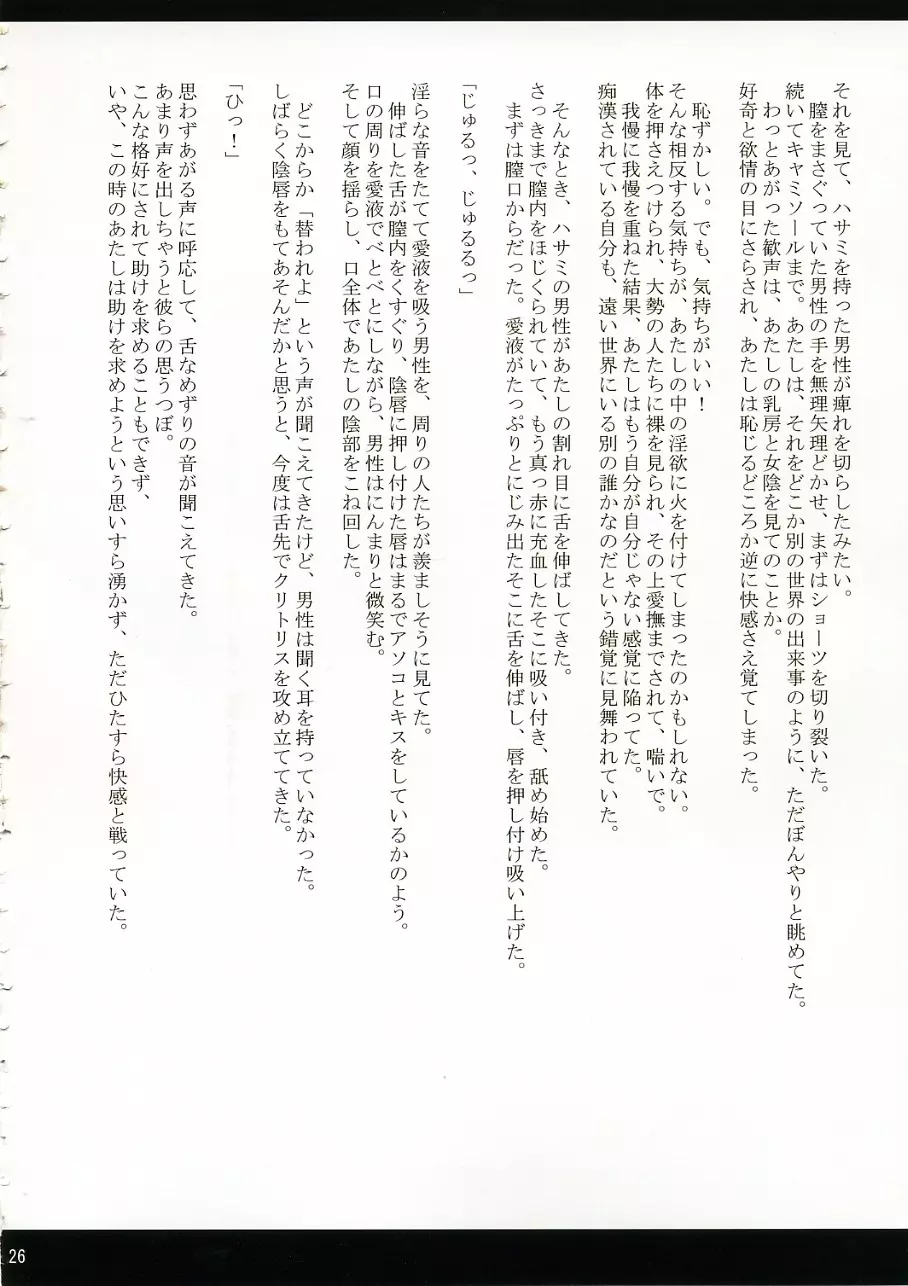 それを見て、ハサミを持った男性が痺れを切らしたみたい。
膣をまさぐっていた男性の手を無理矢理どかせ、まずはショーツを切り裂いた。
続いてキャミソールまで。あたしは、それをどこか別の世界の出来事のように、ただぼんやりと眺めてた。
わっとあがった歓声は、あたしの乳房と女陰を見てのことか。
好奇と欲情の目にさらされ、あたしは恥じるどころか逆に快感さえ覚てしまった。
恥ずかしい。でも、気持ちがいい！
そんな相反する気持ちが、あたしの中の淫欲に火を付けてしまったのかもしれない。
体を押さえつけられ、大勢の人たちに裸を見られ、その上愛撫までされて、喘いで。
我慢に我慢を重ねた結果、あたしはもう自分が自分じゃない感覚に陥ってた。
痴漢されている自分も、遠い世界にいる別の誰かなのだという錯覚に見舞われていた。
そんなとき、ハサミの男性があたしの割れ目に舌を伸ばしてきた。
さっきまで膣内をほじくられていて、もう真っ赤に充血したそこに吸い付き、舐め始めた。
まずは膣口からだった。愛液がたっぷりとにじみ出たそこに舌を伸ばし、唇を押し付け吸い上げた。
「じゅるっ、じゅるるっ」
淫らな音をたてて愛液を吸う男性を、周りの人たちが羨ましそうに見てた。
伸ばした舌が膣内をくすぐり、陰唇に押し付けた唇はまるでアソコとキスをしているかのよう。
口の周りを愛液でべとべとにしながら、男性はにんまりと微笑む。
そして顔を揺らし、口全体であたしの陰部をこね回した。
どこからか「替われよ」という声が聞こえてきたけど、男性は聞く耳を持っていなかった。
しばらく陰唇をもてあそんだかと思うと、今度は舌先でクリトリスを攻め立ててきた。
「ひっ！」
思わずあがる声に呼応して、舌なめずりの音が聞こえてきた。
あまり声を出しちゃうと彼らの思うつぼ。
こんな格好にされて助けを求めることもできず、
いや、この時のあたしは助けを求めようという思いすら湧かず、ただひたすら快感と戦っていた。
26